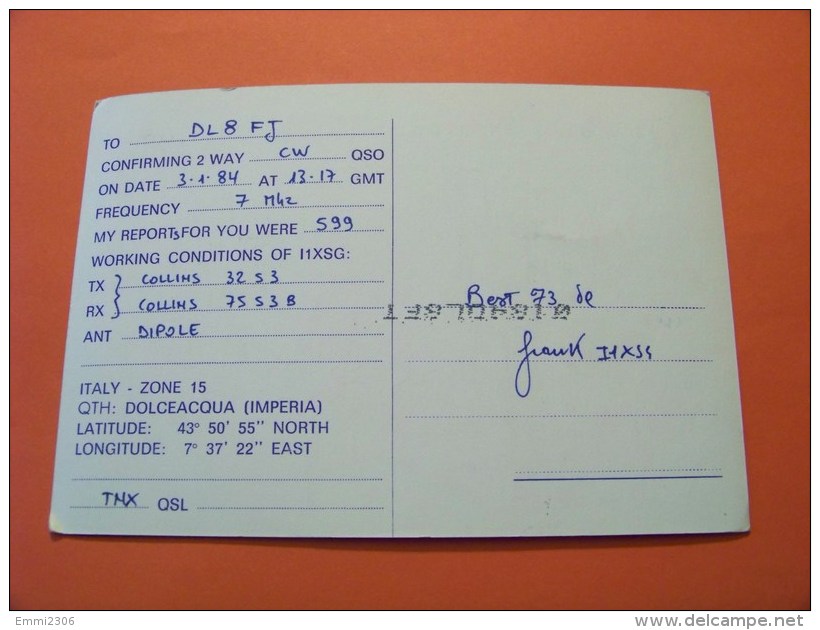 TO DL8FJ
CONFIRMING 2 WAY CW QSO
ON DATE 3·1·84 AT 13·17 GMT
FREQUENCY 7 Mhz
MY REPORTS FOR YOU WERE 599
WORKING CONDITIONS OF I1XSG:
TX COLLINS 32 S 3
RX COLLINS 75 S 3 B
ANT DIPOLE
ITALY - ZONE 15
QTH: DOLCEACQUA (IMPERIA)
LATITUDE: 43° 50' 55'' NORTH
LONGITUDE: 7° 37' 22'' EAST
TNX QSL
Best 73 de
frank I1XSG
Emmi2306
delcampe.net